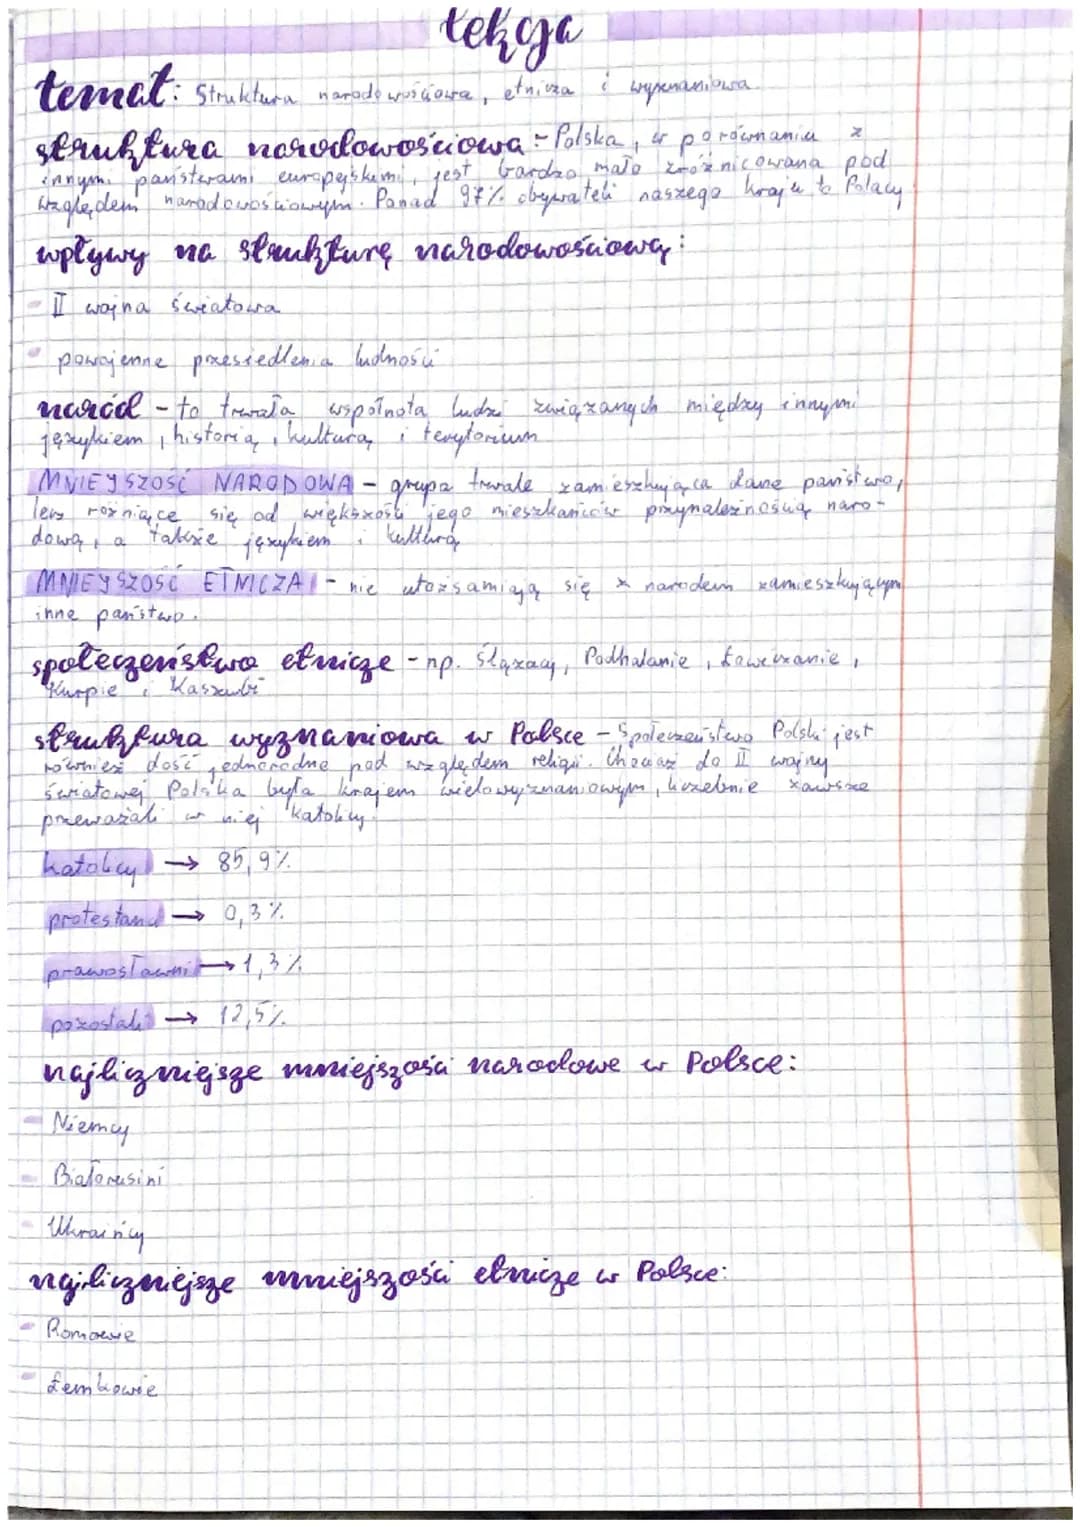 Lekcja
temat: Struktura narodowościowa, etnicza i wyznaniowa
struktura narodowościowa - Polska, w porównaniu z
innymi państwami europejskimi, jest bardzo mało zróżnicowana pod
względem narodowościowym. Ponad 97% obywateli naszego kraju to Polacy
wpływy na strukturę narodowościową:
- II wojna światowa
- powojenne przesiedlenia ludności
naród - to trwała wspólnota ludzi związanych między innymi
językiem, historią, kulturą i terytorium
MNIEJSZOŚĆ NARODOWA - grupa trwale zamieszkująca dane państwo,
lecz różniące się od większości jego mieszkańców przynależnością naro-
dową, a także językiem i kulturą
MNIEJSZOŚĆ ETNICZA - nie utożsamiają się z narodem zamieszkującym
inne państwo.
społeczeństwa etnicze - np. Ślązacy, Podhalanie, Łowiczanie,
Kurpie i Kaszubi
struktura wyznaniowa w Polsce - Społeczeństwo Polski jest
również dość jednorodne pod względem religii. Chociaż do II wojny
światowej Polska była krajem wielowyznaniowym, liczebnie zawsze
przeważali w niej katolicy.
katolicy → 85,9%
protestanci → 0,3%
prawosławni → 1,3%
pozostali → 12,5%
najliczniejsze mniejszości narodowe w Polsce:
- Niemcy
- Białorusini
- Ukraińcy
najliczniejsze mniejszości etnicze w Polsce:
- Romowie
- Łemkowie